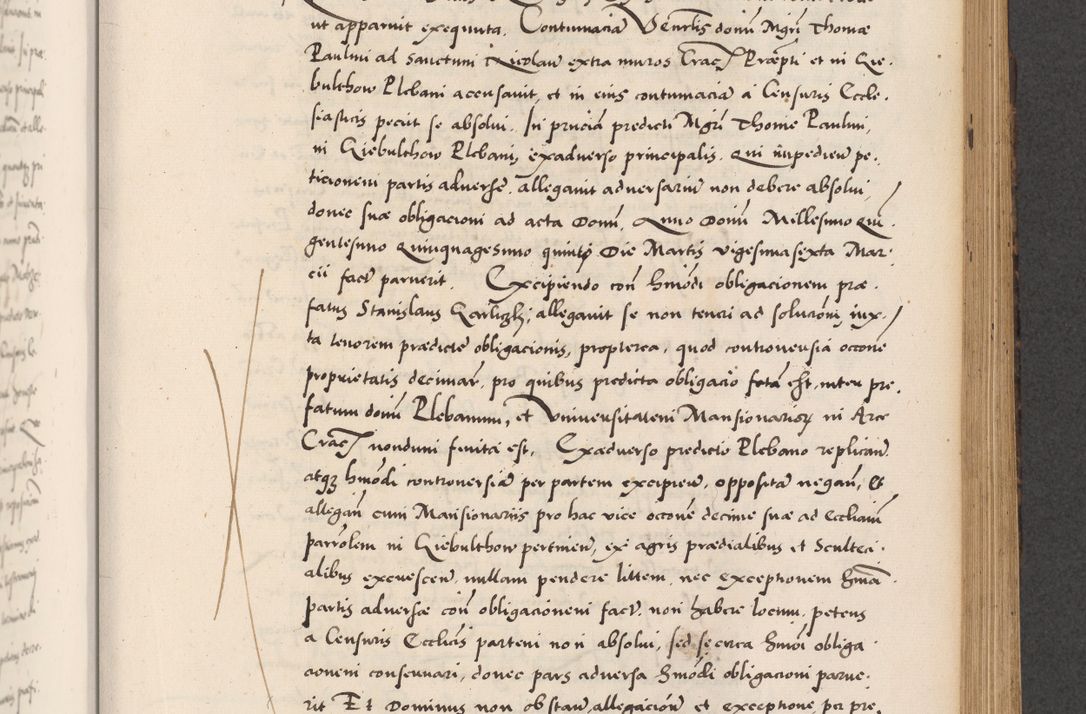 ut apparuit exequuta. Contumaciā Venerlis domī Mgrī Thomæ
Paulini ad Sanctum Nicolaū extra muros Crac̃ Præpti et in Gie-
bulthow Plebani accusauit, et in eius contumaciā a Censuris Eccle-
siasticis peciit se absolui. In pnciā predicti Mgrī Thome Paulini,
in Giebulthow Plebani, exaduerso principalis. Qui impedieñ pe-
ticionem partis aduerse. allegauit aduersariū non debere absolui,
donec suæ obligacioni ad acta Domī. Anno Domī Millesimo Qui
gentesimo Quinquagesimo quinto Die Martis vigesima sexta Mar-
cii fact̃ paruerit. Excipiendo con̄ hmōdi obligacionem præ-
fatus Stanislaus Karliczki, allegauit se non teneri ad solucionē iux-
ta tenorem prædictæ obligacionis, propterea, quod controuersia occōne
proprietatis decimar̃, pro quibus predicta obligacio fcta est, inter pre-
fatum domī Plebanum, et Vniuersitatem Mansionarior̃ in Arce
Crac̃ nondum finita est. Exaduerso predicto Plebano replicañ
atq3 hmōdi controuersiā per partem excipieñ, oppositā negañ, Et
allegañ cum Mansionariis pro hac vice occōne decime suæ ad Eccliam
parrōlem in Giebulthow pertineñ, ex agris prædialibus et Sculteci-
alibus excrescen̄. nullam pendere littem, nec exceptionem hmōi
partis aduersæ con̄ obligacionem fact̃. non habere locum, petens
a Censuris Ecclīcis partem non absolui, sed se circa hmōi obliga-
cionem conseruari, donec pars aduersa hmōdi obligacioni parue-
rit Et Dominus non obstañ allegacioñ et exceptione, per pre-